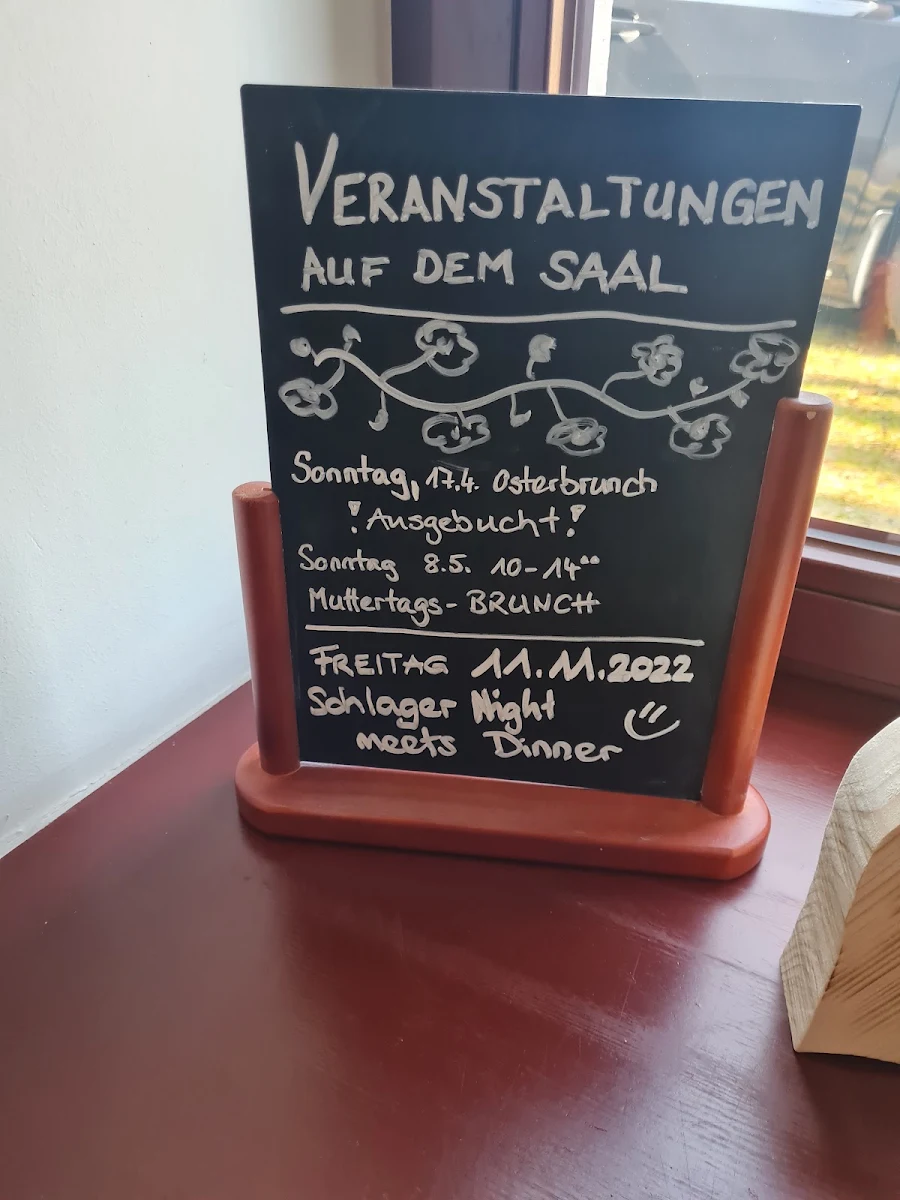 VERANSTALTUNGEN
AUF DEM SAAL
Sonntag, 17.4. Osterbrunch
! Ausgebucht !
Sonntag 8.5. 10-14⁰⁰
Muttertags-BRUNCH
FREITAG 11.11.2022
Schlager Night
meets Dinner